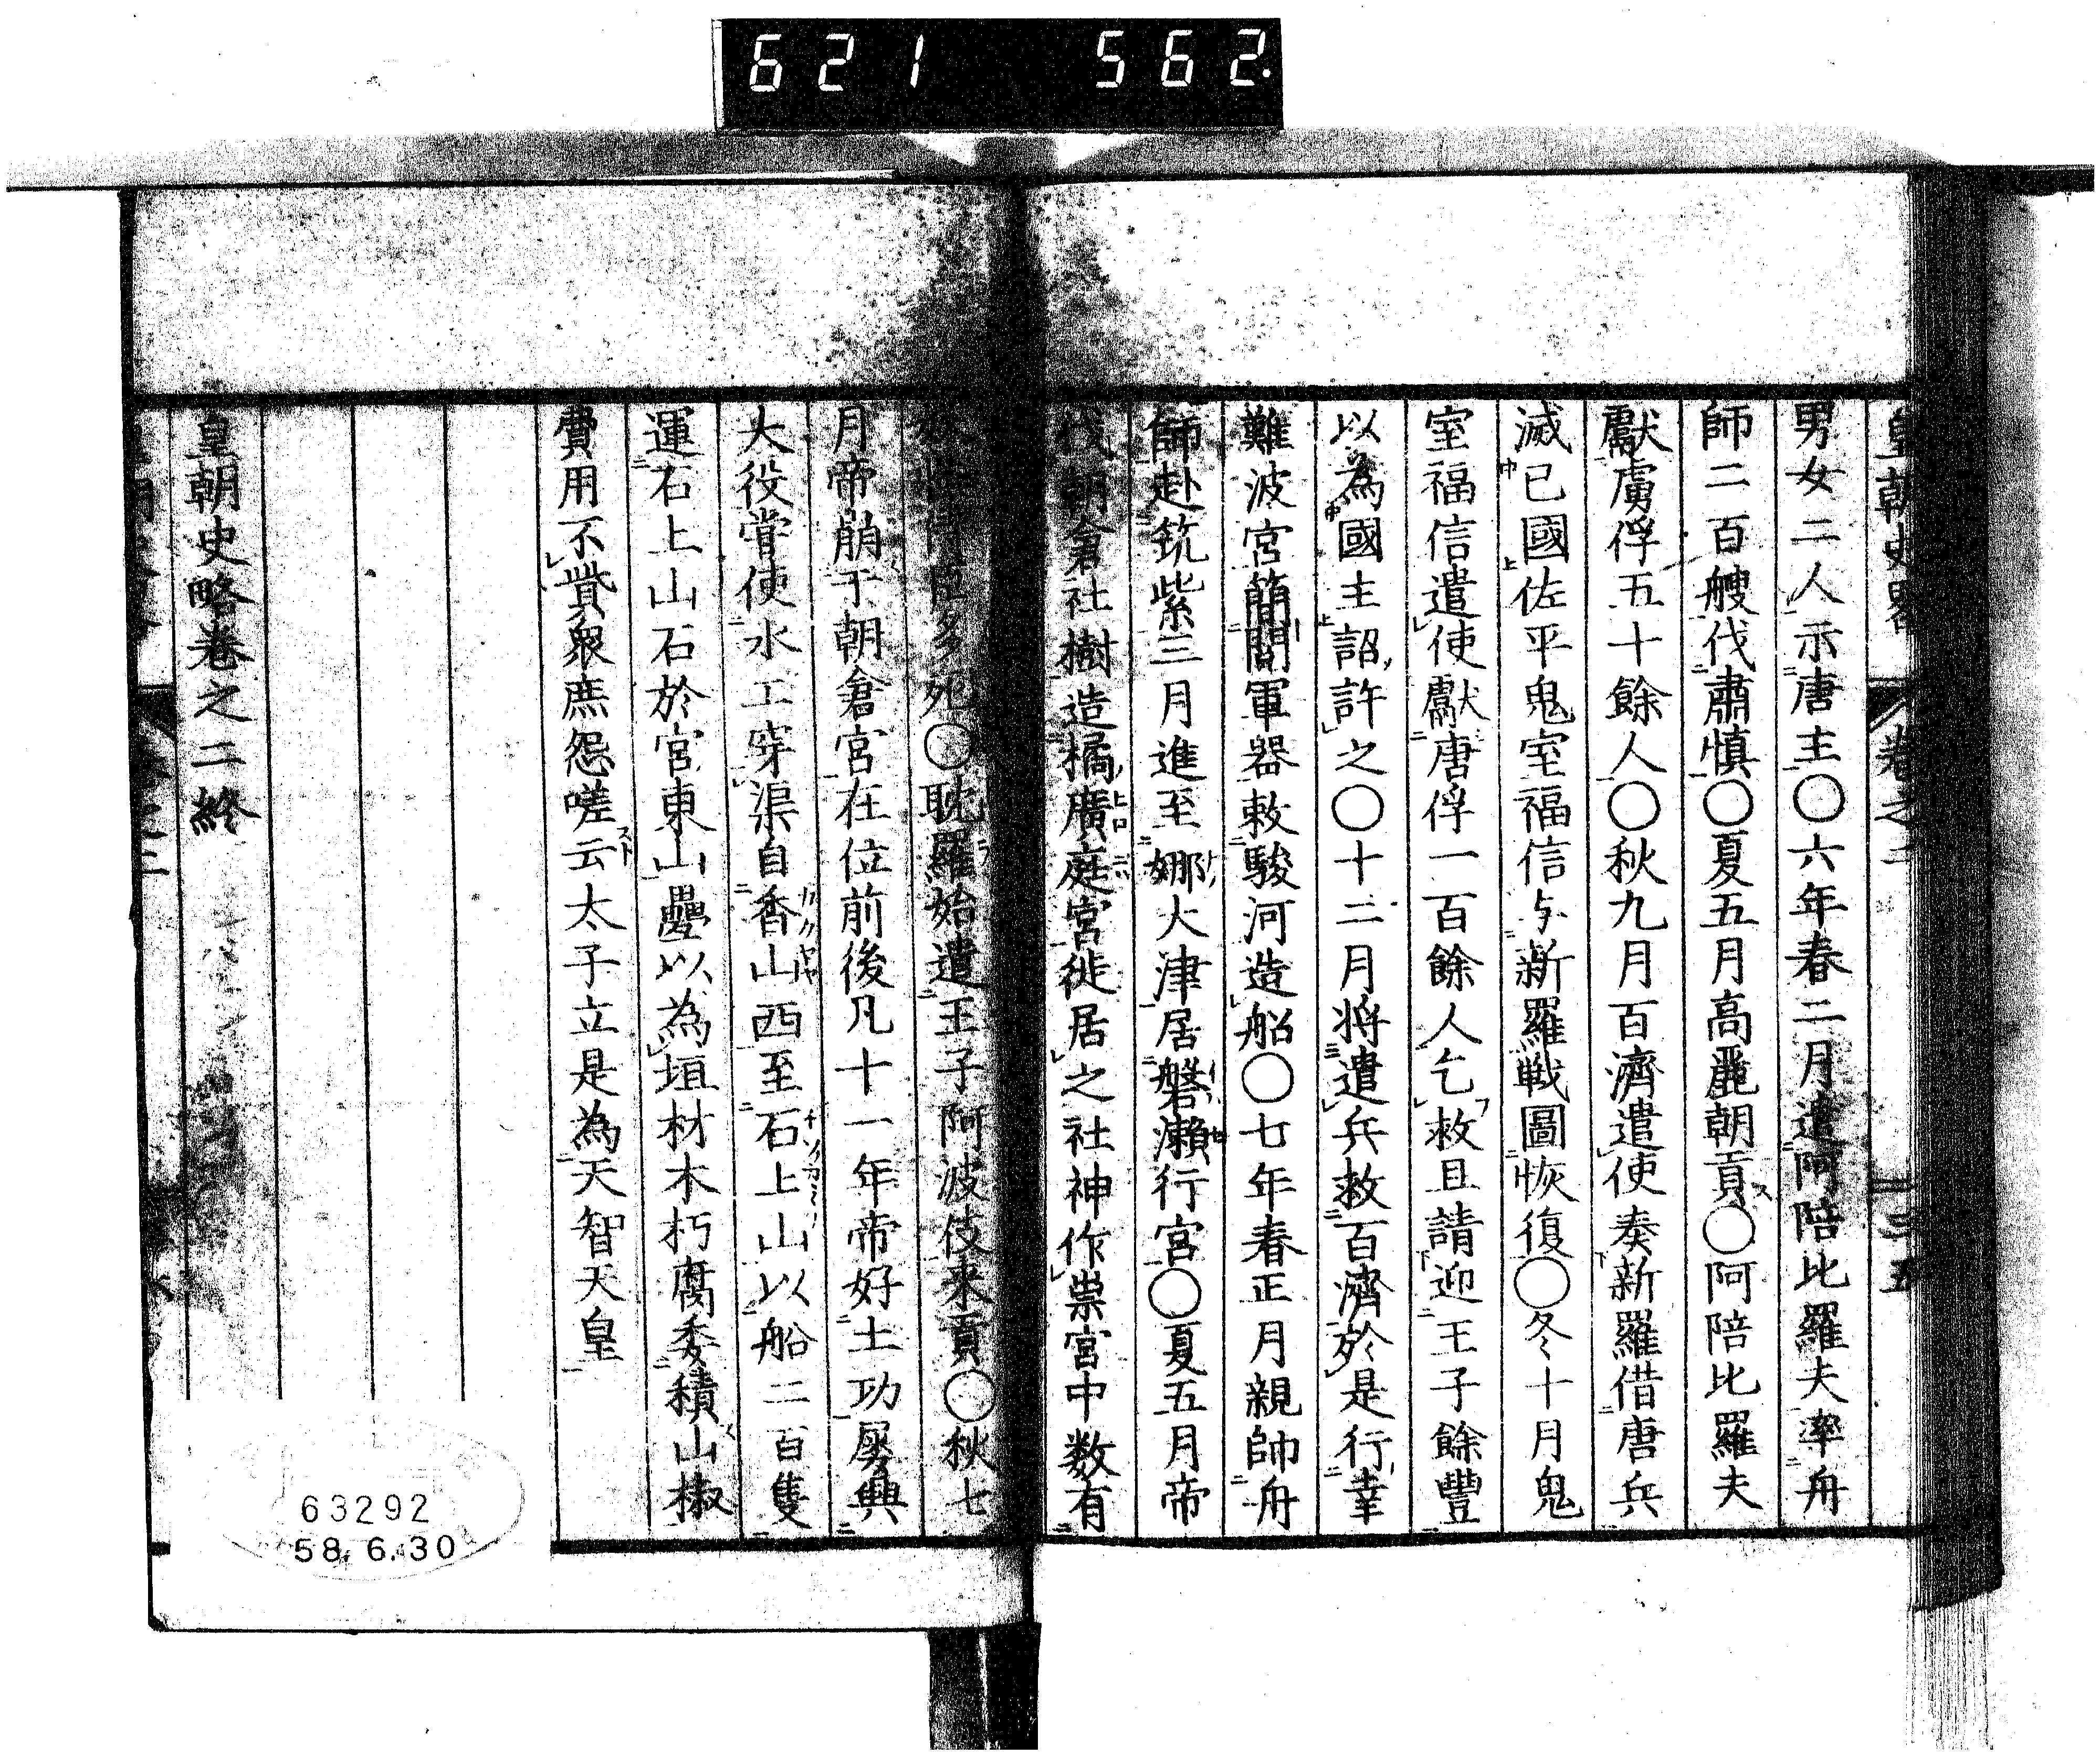 621 562.
皇朝史略 卷之二 三五
男女二人示唐主〇六年春二月遣阿陪比羅夫率舟
師二百艘伐肅慎〇夏五月高麗朝貢ス〇阿陪比羅夫
獻虜俘五十餘人〇秋九月百濟遣使奏新羅借唐兵
滅已國佐平鬼室福信与新羅戦圖恢復〇冬十月鬼
室福信遣使獻唐俘一百餘人乞救且請迎王子餘豐
以為國主詔許之〇十二月将遣兵救百濟於是行幸
難波宮簡閲軍器敕駿河造船〇七年春正月親帥舟
師赴筑紫三月進至娜大津居磐瀬行宮〇夏五月帝
伐朝倉社樹造橘廣庭宮徙居之社神作祟宮中数有
侍臣多死〇耽羅始遣王子阿波伎来貢〇秋七
月帝崩于朝倉宮在位前後凡十一年帝好土功屡興
大役嘗使水工穿渠自香山西至石上山以船二百隻
運石上山石於宮東山壘以為垣材木朽腐委積山椒
費用不貲衆庶怨嗟云太子立是為天智天皇
皇朝史略卷之二終
63292
58.6.30